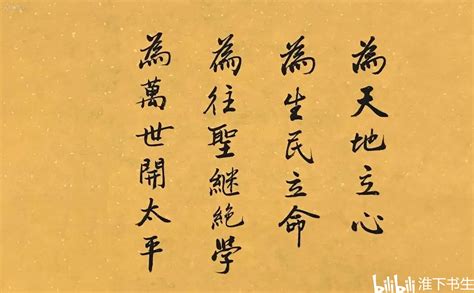 為天地立心
為生民立命
為往聖継絕學
為萬世開太平
bilibili 淮下书生